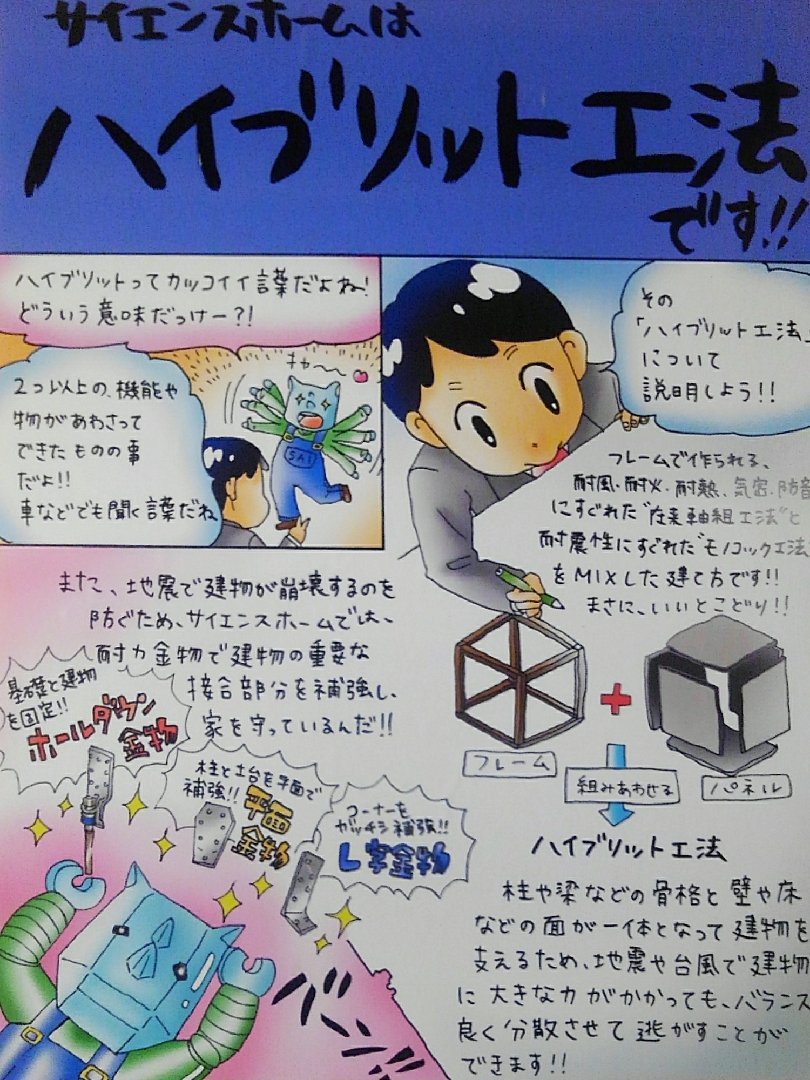 サイエンスホームは
ハイブリット工法
です!!
ハイブリットってカッコイイ言葉だよね!
どういう意味だっけー?!
2つ以上の、機能や
物があわさって
できたものの事
だよ!!
車などでも聞く言葉だね
キャ〜
SAI
その
「ハイブリット工法」
について
説明しよう!!
フレームで作られる、
耐風・耐火・耐熱、気密・防音
にすぐれた"在来軸組工法"と
耐震性にすぐれた"モノコック工法
をMIXした建て方です!!
まさに、いいとこどり!!
フレーム
+
パネル
組みあわせる
ハイブリット工法
柱や梁などの骨格と壁や床
などの面が一体となって建物を
支えるため、地震や台風で建物
に大きな力がかかっても、バランス
良く分散させて逃がすことが
できます!!
また、地震で建物が崩壊するのを
防ぐため、サイエンスホームでは、
耐力金物で建物の重要な
接合部分を補強し、
家を守っているんだ!!
基礎と建物
を固定!!
ホールダウン
金物
柱と土台を平面で
補強!!平面
金物
コーナーを
ガッチリ補強!!
L字金物
バン!!